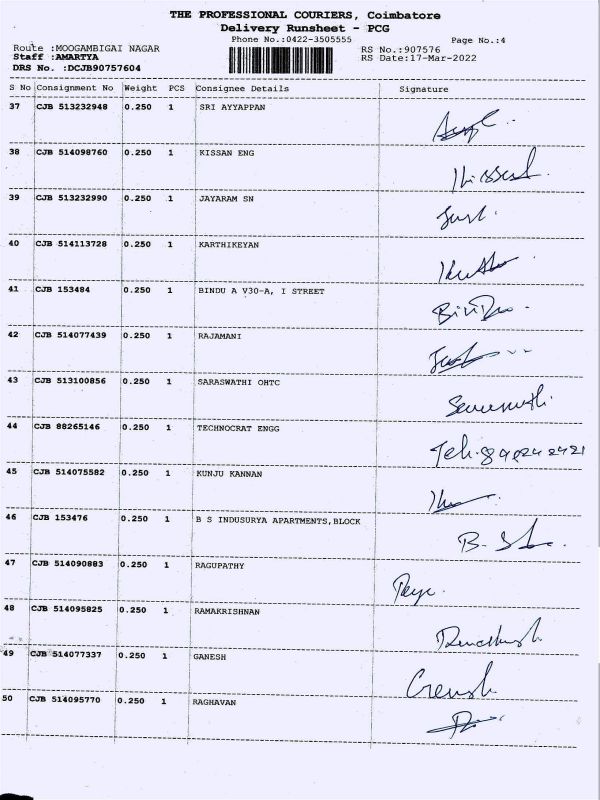 THE PROFESSIONAL COURIERS, Coimbatore
Delivery Runsheet - PCG
Phone No.:0422-3505555
Page No.:4
Route :MOOGAMBIGAI NAGAR
RS No.:907576
Staff :AMARTYA
RS Date:17-Mar-2022
DRS No. :DCJB90757604
S No Consignment No Weight PCS Consignee Details Signature
37 CJB 513232948 0.250 1 SRI AYYAPPAN
38 CJB 514098760 0.250 1 KISSAN ENG
39 CJB 513232990 0.250 1 JAYARAM SN
40 CJB 514113728 0.250 1 KARTHIKEYAN
41 CJB 153484 0.250 1 BINDU A V30-A, I STREET
42 CJB 514077439 0.250 1 RAJAMANI
43 CJB 513100856 0.250 1 SARASWATHI OHTC
44 CJB 88265146 0.250 1 TECHNOCRAT ENGG
45 CJB 514075582 0.250 1 KUNJU KANNAN
46 CJB 153476 0.250 1 B S INDUSURYA APARTMENTS,BLOCK
47 CJB 514090883 0.250 1 RAGUPATHY
48 CJB 514095825 0.250 1 RAMAKRISHNAN
49 CJB 514077337 0.250 1 GANESH
50 CJB 514095770 0.250 1 RAGHAVAN